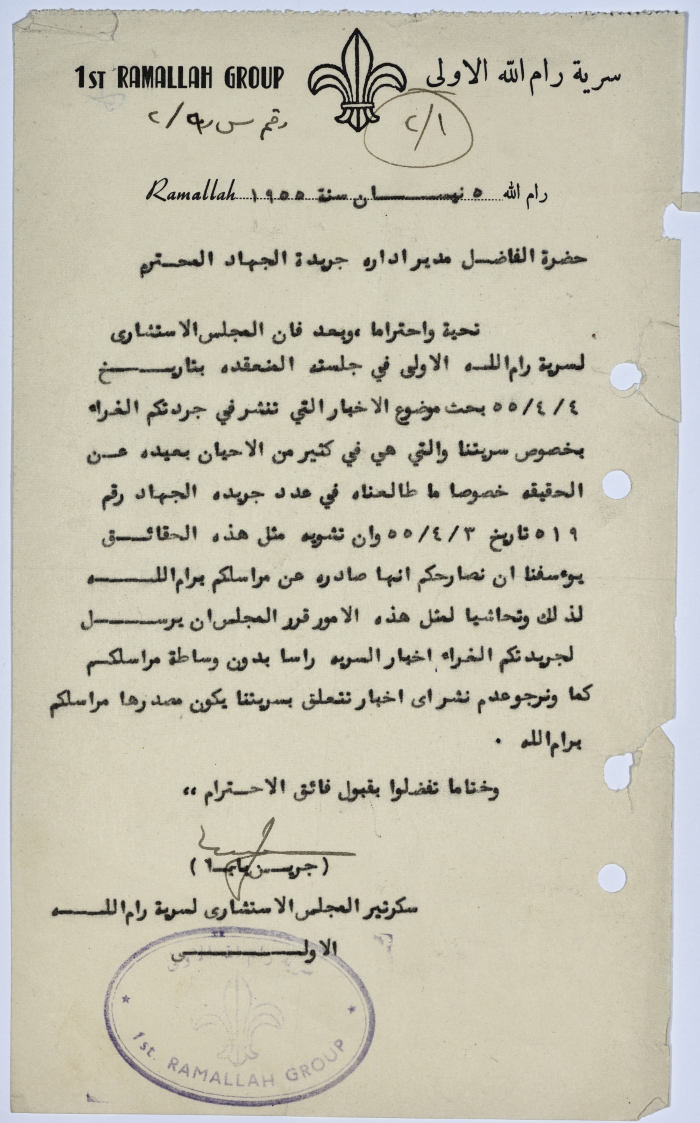 1ST RAMALLAH GROUP سرية رام الله الاولى
رقم س ر/٩/٢
٢/١
Ramallah رام الله ٥ نيسـان سنة ١٩٥٥
حضرة الفاضل مدير اداره جريدة الجهاد المحترم
تحية واحتراما ،وبعد فان المجلس الاستشارى
لسرية رام الله الاولى في جلسته المنعقده بتاريخ
٥٥/٤/٤ بحث موضوع الاخبار التي تنشر في جردتكم الغراء
بخصوص سريتنا والتي هي في كثير من الاحيان بعيده عن
الحقيقه خصوصا ما طالعناه في عدد جريده الجهاد رقم
٥١٩ تاريخ ٥٥/٤/٣ وان تشويه مثل هذه الحقائق
يوءسفنا ان نصارحكم انها صادره عن مراسلكم برام الله
لذلك وتحاشيا لمثل هذه الامور قرر المجلس ان يرسل
لجريدتكم الغراء اخبار السريه راسا بدون وساطة مراسلكم
كما ونرجو عدم نشر اى اخبار تتعلق بسريتنا يكون مصدرها مراسلكم
برام الله .
وختاما تفضلوا بقبول فائق الاحترام ،،
سكرتير المجلس الاستشارى لسرية رام الله
الاولى
1st. RAMALLAH GROUP